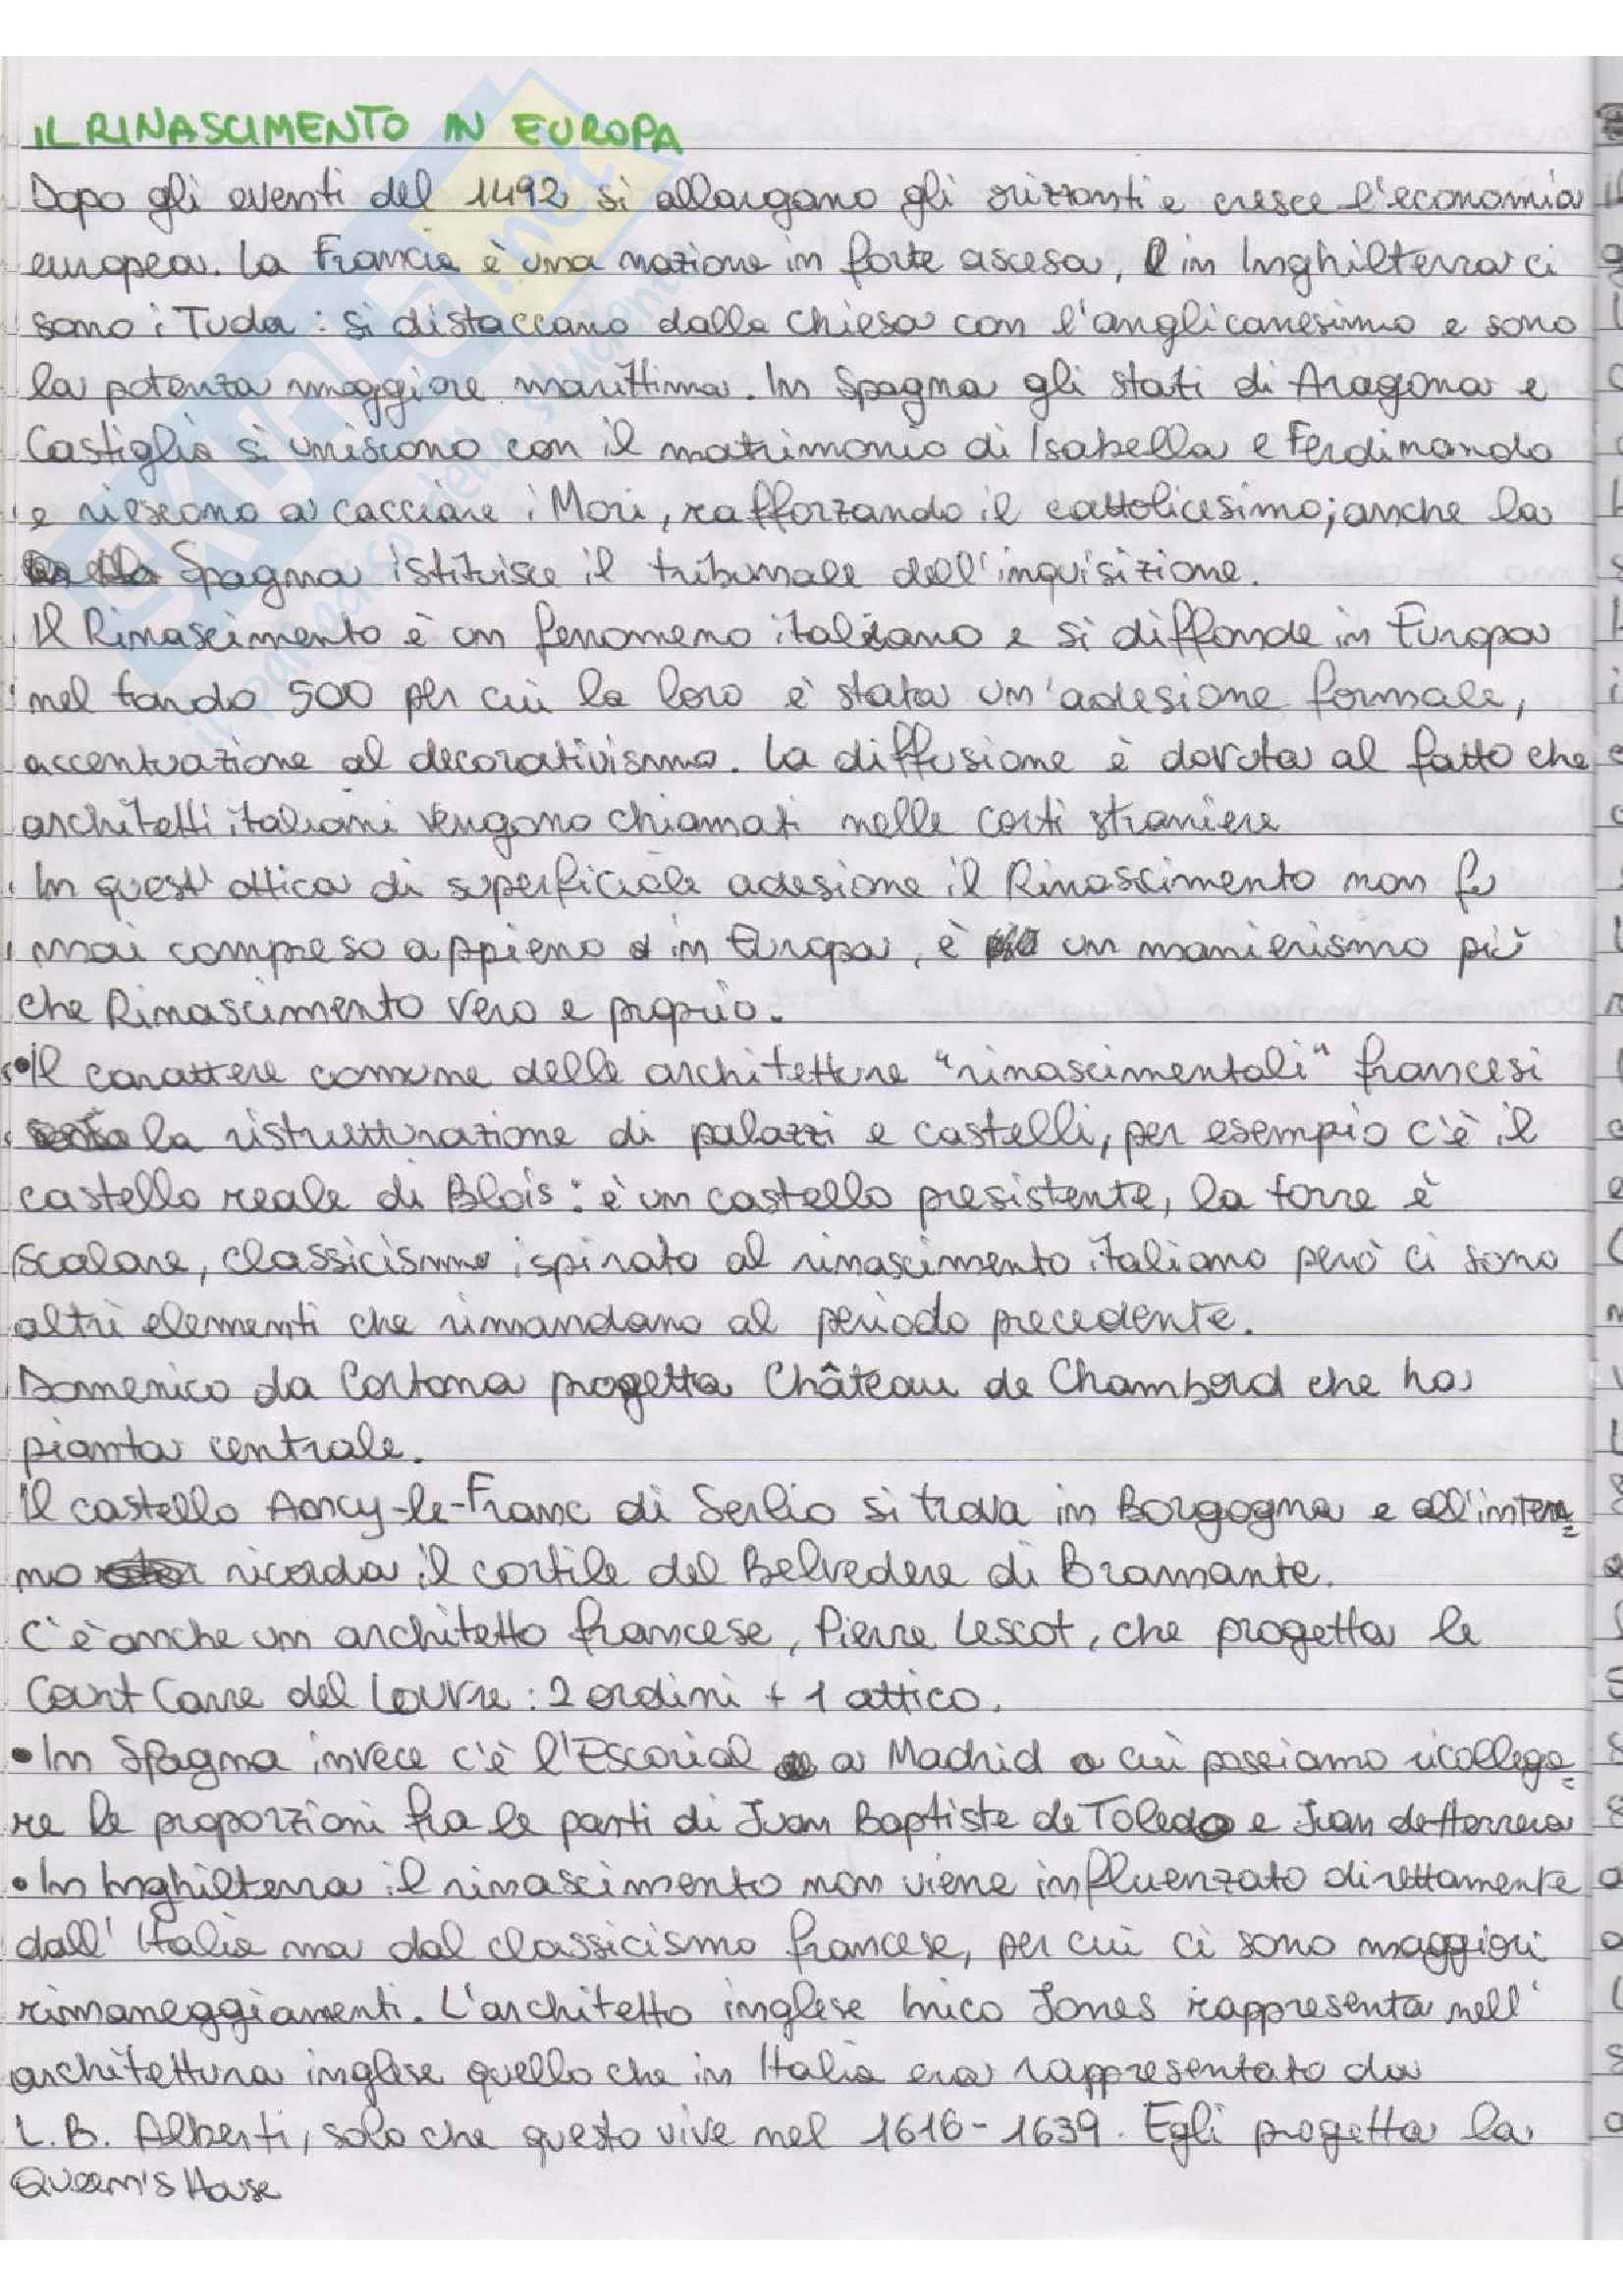 IL RINASCIMENTO IN EUROPA
Dopo gli eventi del 1492 si allargano gli orizzonti e cresce l'economia
europea. La Francia è una nazione in forte ascesa, in Inghilterra ci
sono i Tuda: si distaccano dalla chiesa con l'anglicanesimo e sono
la potenza maggiore marittima. In Spagna gli stati di Aragona e
Castiglia si uniscono con il matrimonio di Isabella e Ferdinando
e riescono a cacciare i Mori, rafforzando il cattolicesimo; anche la
Spagna istituisce il tribunale dell'inquisizione.
Il Rinascimento è un fenomeno italiano e si diffonde in Europa
nel tardo 500 per cui la loro è stata un'adesione formale,
accentuazione al decorativismo. La diffusione è dovuta al fatto che
architetti italiani vengono chiamati nelle corti straniere
In quest'ottica di superficiale adesione il Rinascimento non fu
mai compreso appieno in Europa, è un manierismo più
che Rinascimento vero e proprio.
• Il carattere comune delle architetture "rinascimentali" francesi
la ristrutturazione di palazzi e castelli, per esempio c'è il
castello reale di Blois: è un castello presistente, la torre è
scalare, classicismo ispirato al rinascimento italiano però ci sono
altri elementi che rimandano al periodo precedente.
Domenico da Cortona progetta Château de Chambord che ha
pianta centrale.
Il castello Ancy-le-Franc di Serlio si trova in Borgogna e all'inter=
no ricorda il cortile del Belvedere di Bramante.
C'è anche un architetto francese, Pierre Lescot, che progetta le
Court Carre del Louvre: 2 ordini + 1 attico.
• In Spagna invece c'è l'Escorial a Madrid a cui possiamo ricollega=
re le proporzioni fra le parti di Juan Baptiste de Toledo e Juan de Herrera
• In Inghilterra il rinascimento non viene influenzato direttamente
dall'Italia ma dal classicismo francese, per cui ci sono maggiori
rimaneggiamenti. L'architetto inglese Inico Jones rappresenta nell'
architettura inglese quello che in Italia era rappresentato da
L.B. Alberti, solo che questo vive nel 1616-1639. Egli progetta la
Queen's House